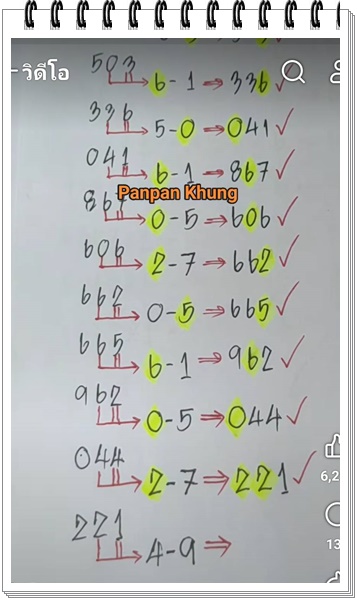 503
วิดีโอ
6-1 ⇒ 336 ✓
336
5-0 ⇒ 041 ✓
041
6-1 ⇒ 867 ✓
867
Panpan Khung
0-5 ⇒ 606 ✓
606
2-7 ⇒ 662 ✓
662
0-5 ⇒ 665 ✓
665
6-1 ⇒ 962 ✓
962
0-5 ⇒ 044 ✓
044
2-7 ⇒ 221 ✓
221
4-9 ⇒